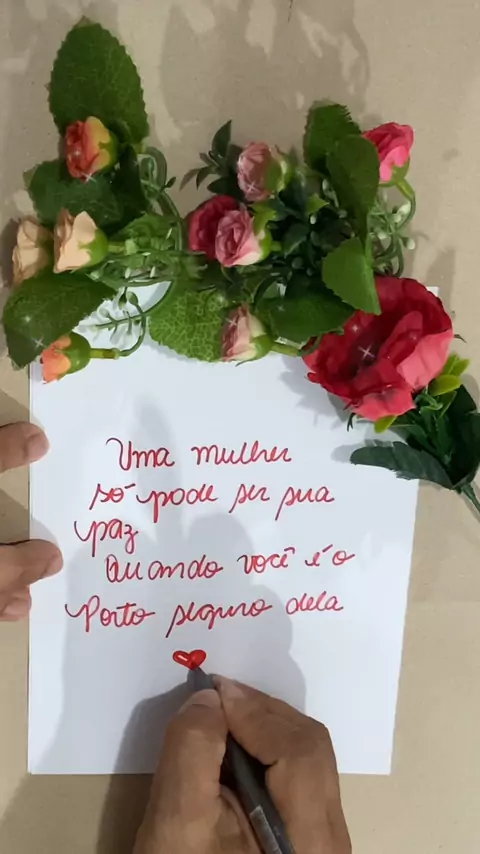 Uma mulher
só pode ser sua
paz
Quando você é o
Porto seguro dela